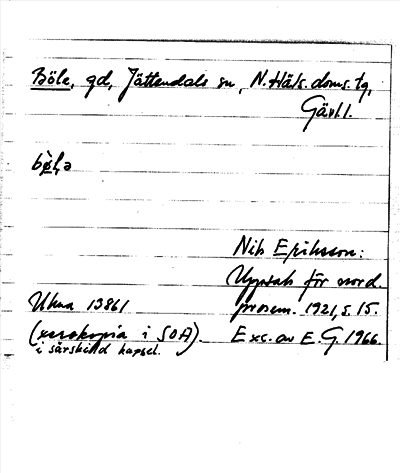 Böle, gd, Jättendals sn, N. Häls. doms. tg,
Gävl. l.
bø̀l,ə
Nils Eriksson:
Uppsats för nord.
Ukna 13861 prosem. 1921, s. 15.
(xerokopia i SOA). Exc. av E. G. 1966.
i särskild kapsel.